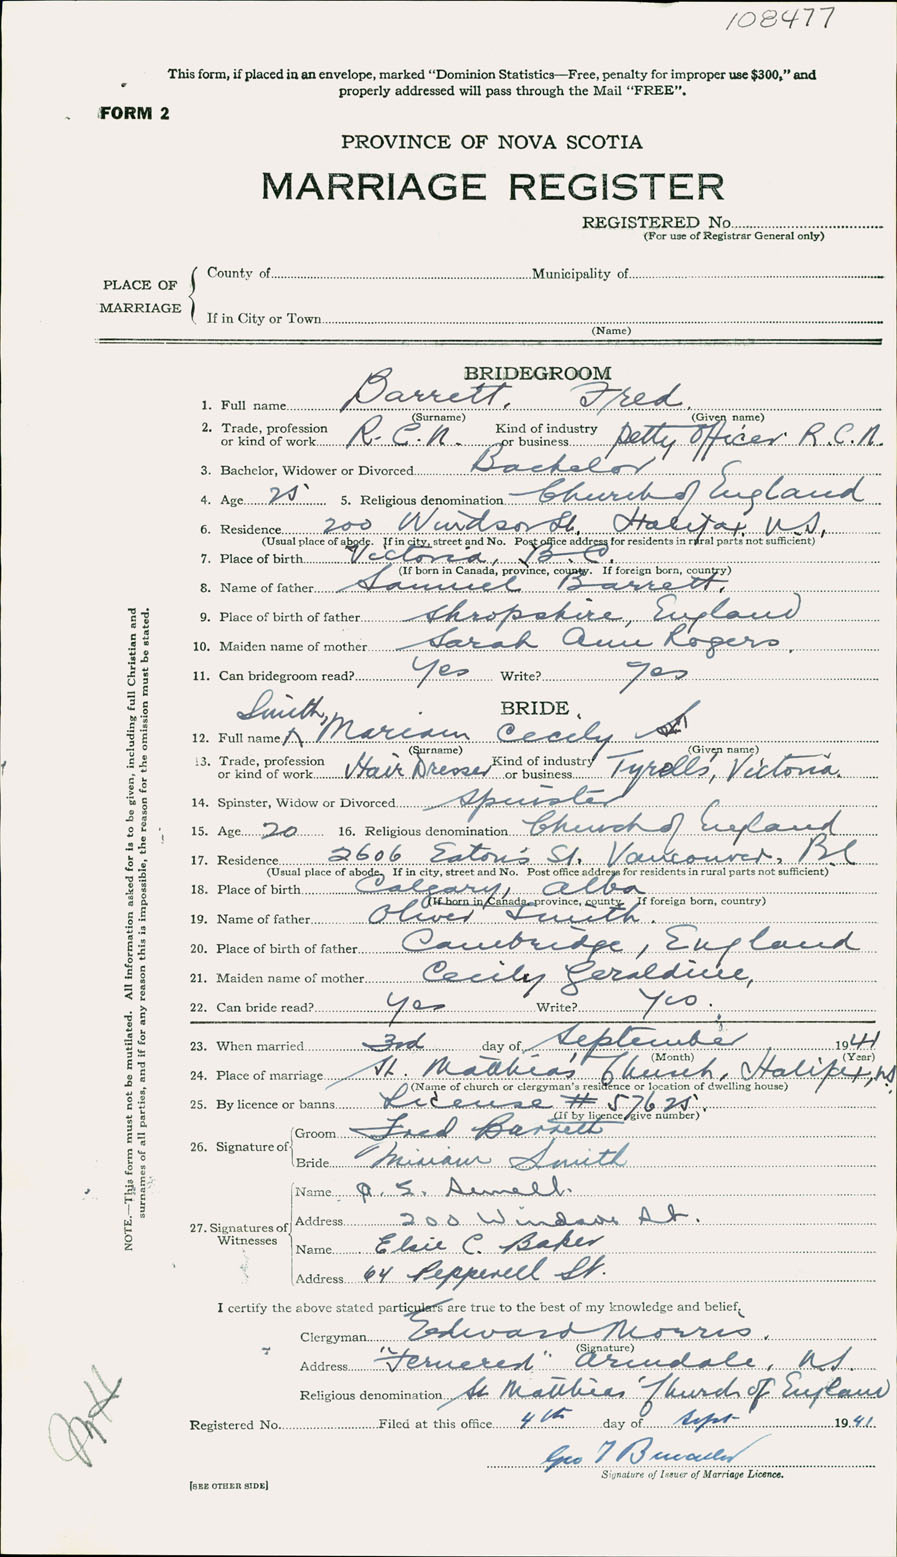 108477
This form, if placed in an envelope, marked "Dominion Statistics—Free, penalty for improper use $300," and
properly addressed will pass through the Mail "FREE".
FORM 2
PROVINCE OF NOVA SCOTIA
MARRIAGE REGISTER
REGISTERED No.
(For use of Registrar General only)
PLACE OF MARRIAGE
County of Municipality of
If in City or Town
(Name)
BRIDEGROOM
1. Full name Barrett, Fred
(Surname) (Given name)
2. Trade, profession or kind of work R.C.N. Kind of industry or business Petty Officer R.C.N.
3. Bachelor, Widower or Divorced Bachelor
4. Age 25 5. Religious denomination Church of England
6. Residence 200 Windsor St. Halifax, N.S,
(Usual place of abode. If in city, street and No. Post office address for residents in rural parts not sufficient)
7. Place of birth Victoria, B.C.
(If born in Canada, province, county. If foreign born, country)
8. Name of father Samuel Barrett.
9. Place of birth of father Shropshire, England
10. Maiden name of mother Sarah Ann Rogers.
11. Can bridegroom read? Yes Write? Yes
BRIDE
Smith,
12. Full name Mariam Cecily
(Surname) (Given name)
13. Trade, profession or kind of work Hair Dresser Kind of industry or business Tyrells, Victoria.
14. Spinster, Widow or Divorced Spinster
15. Age 20 16. Religious denomination Church of England
17. Residence 2606 Eaton's St. Vancouver, BC
(Usual place of abode. If in city, street and No. Post office address for residents in rural parts not sufficient)
18. Place of birth Calgary, Alba
(If born in Canada, province, county. If foreign born, country)
19. Name of father Oliver Smith.
20. Place of birth of father Cambridge, England
21. Maiden name of mother Cecily Geraldine,
22. Can bride read? Yes Write? Yes.
23. When married 3rd day of September 1941
(Month) (Year)
24. Place of marriage St. Matthias' Church, Halifax, N.S.
(Name of church or clergyman's residence or location of dwelling house)
25. By licence or banns License # 57625.
(If by licence, give number)
26. Signature of
Groom Fred Barrett
Bride Miriam Smith
27. Signatures of Witnesses
Name
Address 200 Windsor St.
Name Elsie C. Baker
Address 64 Pepperell St.
I certify the above stated particulars are true to the best of my knowledge and belief.
Clergyman Edward Morris.
(Signature)
Address Armdale, N.S.
Religious denomination St Matthias' Church of England
Registered No. Filed at this office 4th day of Sept 1941
Signature of Issuer of Marriage Licence.
[SEE OTHER SIDE]
NOTE.—This form must not be mutilated. All information asked for is to be given, including full Christian and
surnames of all parties, and if for any reason this is impossible, the reason for the omission must be stated.